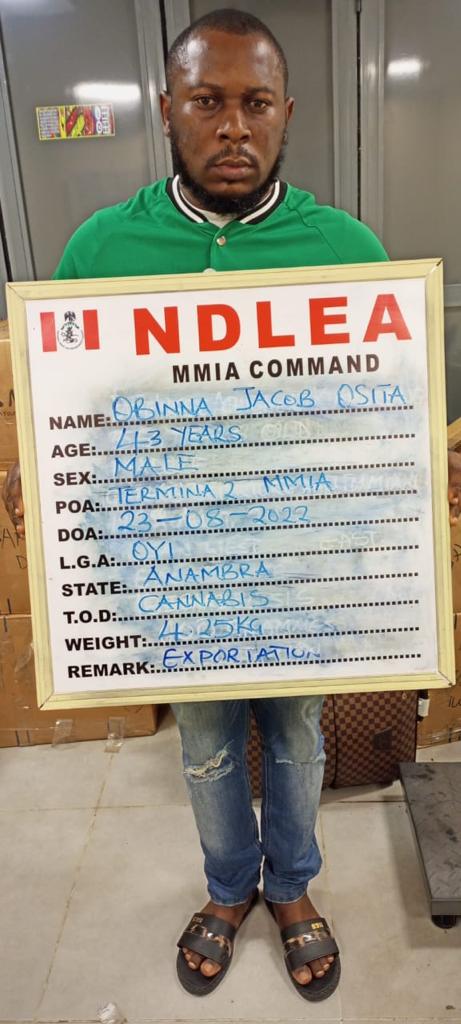 NDLEA
MMIA COMMAND
NAME: OBINNA JACOB OSITA
AGE: 43 YEARS
SEX: MALE
POA: TERMINA 2 MMIA
DOA: 23-08-2022
L.G.A: OYI
STATE: ANAMBRA
T.O.D: CANNABIS
WEIGHT: 4.25KG
REMARK: EXPORTATION